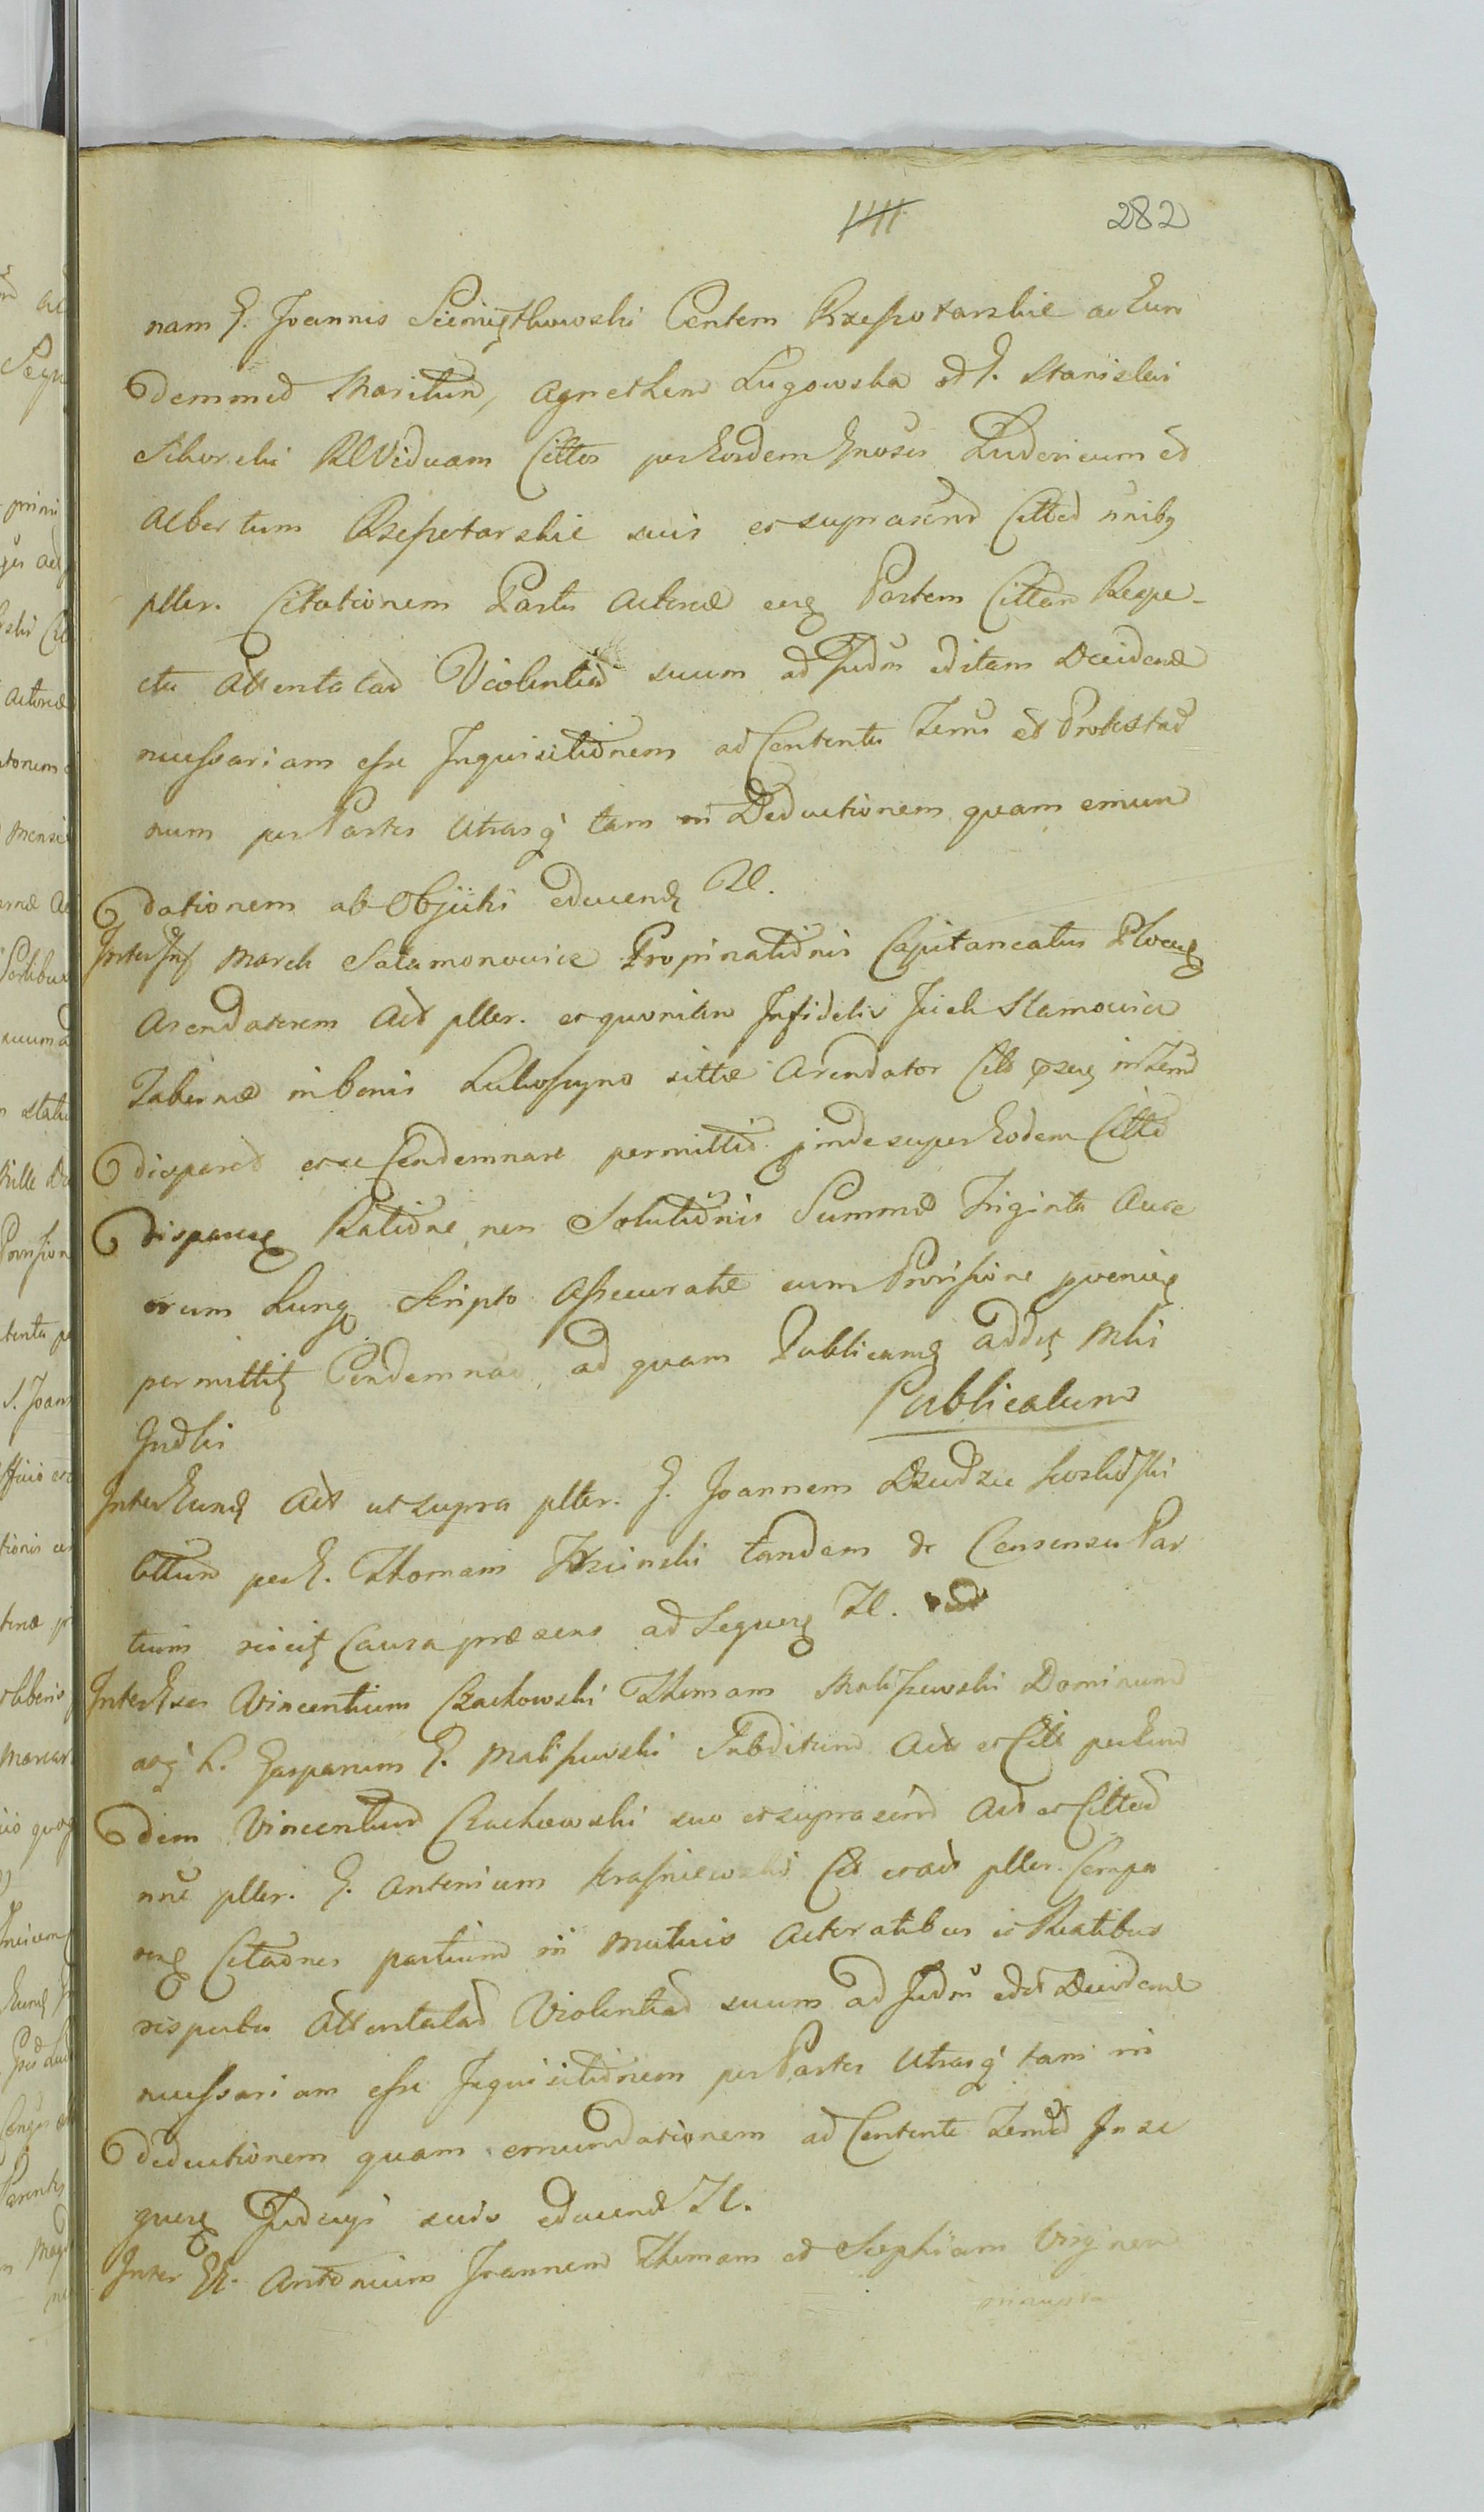 282
nam G. Joannis Conten Rzeszotarskie ac Eun
demmet Maritum, Agnethem Lugowska olim G. Stanislai
Sikorski Viduam Cittos per Eosdem Gnosos Ludovicum et
Albertum Rzeszotarskie suis et suprascrip Cittor nnibq
plter. Citationem Partis Actoreæ erga Partem Cittam Respe-
ctu Attentatar Violentiar suum ad Judm editam Decidendæ
necessariam esse Inquisitionem ad Contenta et Protestaõ
num per Partes Utrasq tam in Deductionem quam emun
dationem ab Objectis educend Rl.
Inter Inf March Salamonowicz Propinationis Capitaneatus Plocen
Arendatorem Act plter. et quoniam Infidelis Slamowicz
Tabernæ in bonis sittæ Arendator Citt in Termo
disparet ex se Condemnare permittit proinde super Eodem Citto
disparen Ratione non Solutionis Summæ Triginta Aure
orum Lung Scripto Assecuratæ cum Provisione proveniẽ
permittitq Condemnaõ, ad quam Publicamq addit Mlis
Judlis Publicatum
Inter Eund Act ut supra plter. G. Joannem
Cittum per G. Thomam tandem de Consensu Par
tium reiicitq Causa præsens ad Sequen Tl.
Inter Gsos Vincentium Czachowski Thomam Maliszewski Dominum
atq L. Gasparum G. Maliszewski Subditum Act et Citt per Eun
dem Vincentium Czachowski suo et suprascrip Act et Cittor
nne plter. G. Antonium Krasniewski Citt et act plter. Compa
ren Citaõnes partium in Mutuis Actoratibus et Reatibus
respectu Attentatar Violentiar suum ad Judm edit Decidend
necessariam esse Inquisitionem per Partes Utrasq tam in
deductionem quam emundationem ad Contenta In se
quen Judicys suis educend Tl.
Inter GG. Antonium Joannem Thomam et Sophiam Virginem